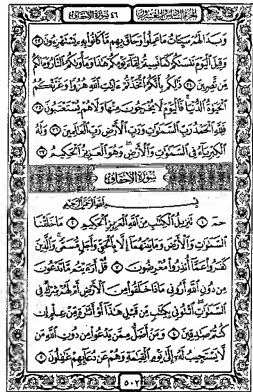 الجزء السادس والعشرون ٤٦ سورة الأحقاف
وبدا لهم سيئات ما عملوا وحاق بهم ما كانوا به يستهزءون ٣٣
وقيل اليوم ننسىكم كما نسيتم لقاء يومكم هذا ومأوىكم النار وما لكم
من نصرين ٣٤ ذلكم بأنكم اتخذتم ءايت الله هزوا وغرتكم
الحيوة الدنيا فاليوم لا يخرجون منها ولا هم يستعتبون ٣٥
فلله الحمد رب السموت ورب الأرض رب العلمين ٣٦ وله
الكبرياء في السموت والأرض وهو العزيز الحكيم ٣٧
سورة الأحقاف
بسم الله الرحمن الرحيم
حم ١ تنزيل الكتب من الله العزيز الحكيم ٢ ما خلقنا
السموت والأرض وما بينهما إلا بالحق وأجل مسمى والذين
كفروا عما أنذروا معرضون ٣ قل أرءيتم ما تدعون
من دون الله أروني ماذا خلقوا من الأرض أم لهم شرك في
السموت ائتوني بكتب من قبل هذا أو أثرة من علم إن
كنتم صدقين ٤ ومن أضل ممن يدعوا من دون الله من
لا يستجيب له إلى يوم القيمة وهم عن دعائهم غفلون ٥
٥٠٢